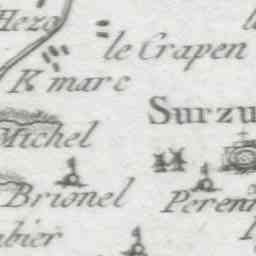 Hezo
le Crapen
K marc
Surzu
Michel
Brionel
Peren
bier